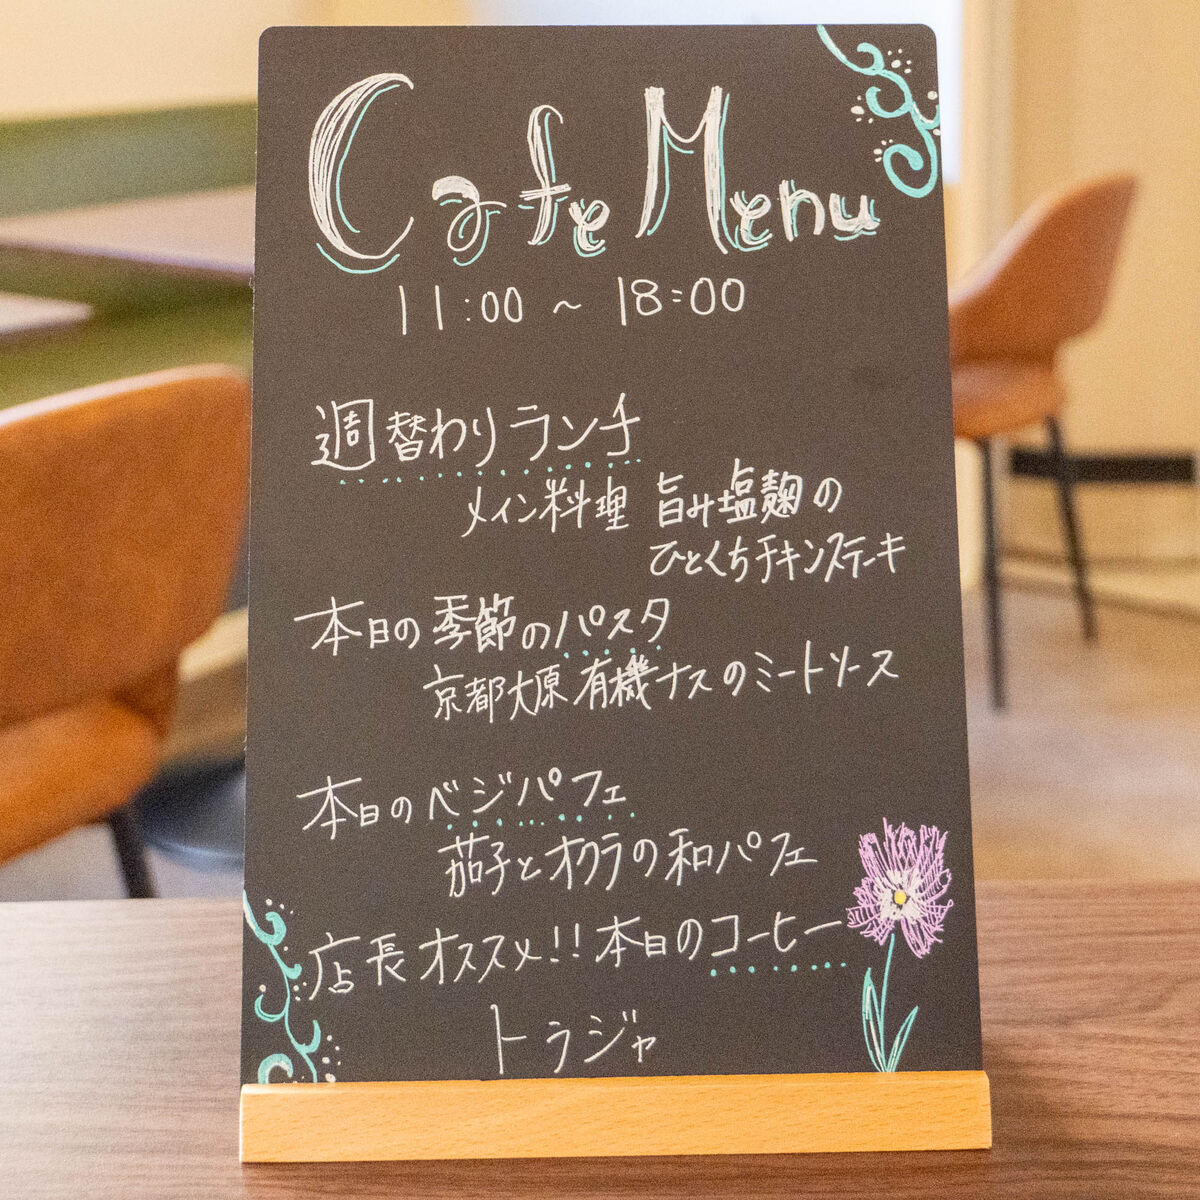 Cafe Menu
11:00 ~ 18:00
週替わりランチ
メイン料理 旨み塩麹の
ひとくちチキンステーキ
本日の季節のパスタ
京都大原有機ナスのミートソース
本日のベジパフェ
茄子とオクラの和パフェ
店長オススメ!!本日のコーヒー
トラジャ